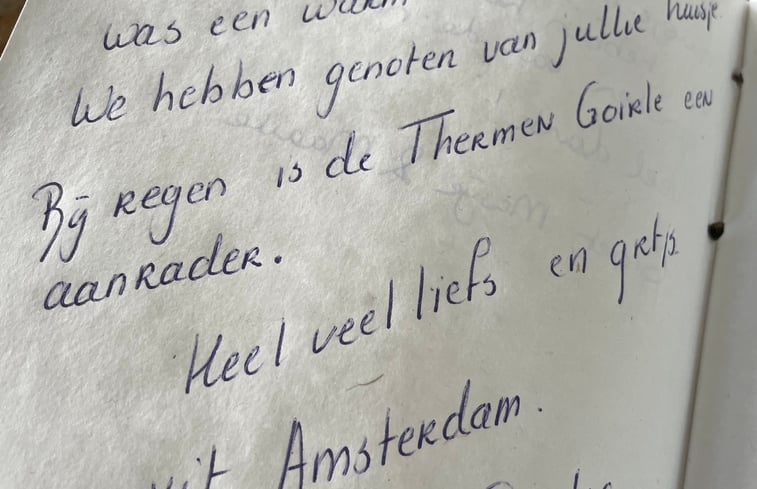 was een warm
We hebben genoten van jullie huisje
Bij regen is de Thermen Goirle een
aanrader.
Heel veel liefs en grtjs
uit Amsterdam.